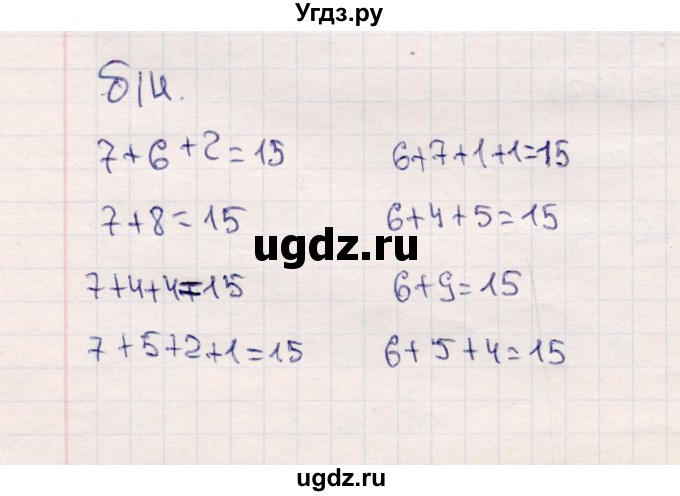 Угдз.ру
б/н.
7+6+2=15
6+7+1+1=15
7+8=15
6+4+5=15
ugdz.ru
7+4+4=15
6+9=15
7+5+2+1=15
6+5+4=15
ugdz.ru